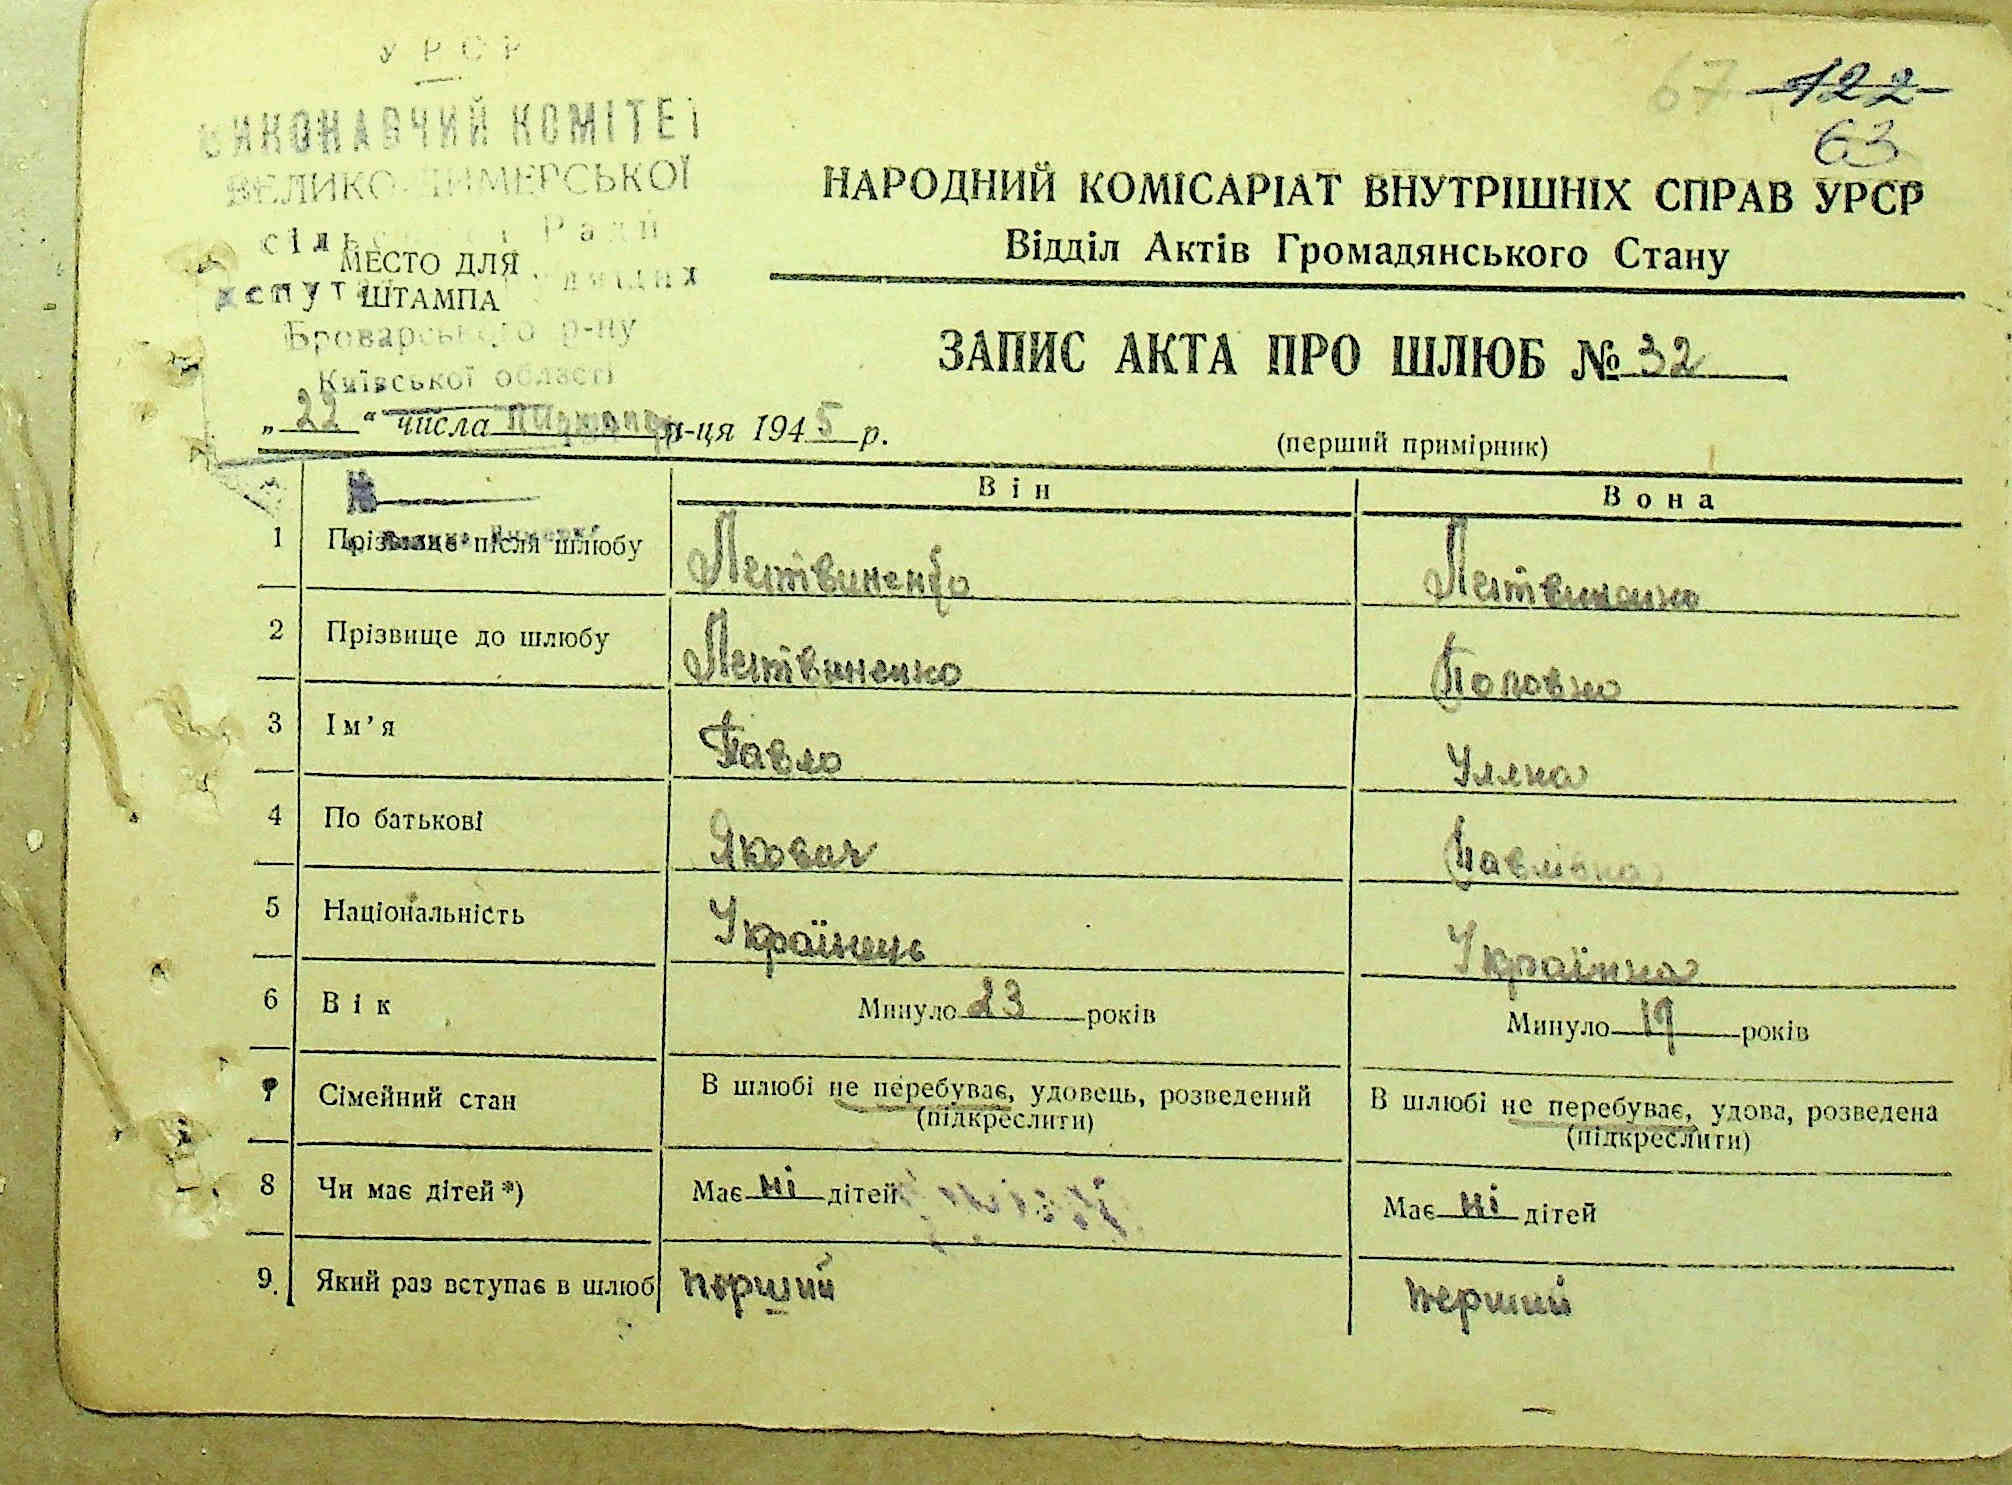 УРСР
ВИКОНАВЧИЙ КОМІТЕТ
ВЕЛИКО-ДИМЕРСЬКОЇ
сільської Ради
депутатів трудящих
МЕСТО ДЛЯ
ШТАМПА
Броварського р-ну
Київської області
67 122
63
НАРОДНИЙ КОМІСАРІАТ ВНУТРІШНІХ СПРАВ УРСР
Відділ Актів Громадянського Стану
ЗАПИС АКТА ПРО ШЛЮБ № 32
„ 22 “ числа листопада м-ця 1945 р.
(перший примірник)
№
Він Вона
1 Прізвище після шлюбу Летвиненко Летвиненко
2 Прізвище до шлюбу Летвиненко Половко
3 Ім’я Павло Уляна
4 По батькові Якович Павлівна
5 Національність Українець Українка
6 Вік Минуло 23 років Минуло 19 років
7 Сімейний стан В шлюбі не перебуває, удовець, розведений (підкреслити) В шлюбі не перебуває, удова, розведена (підкреслити)
8 Чи має дітей*) Має ні дітей Має ні дітей
9. Який раз вступає в шлюб перший перший